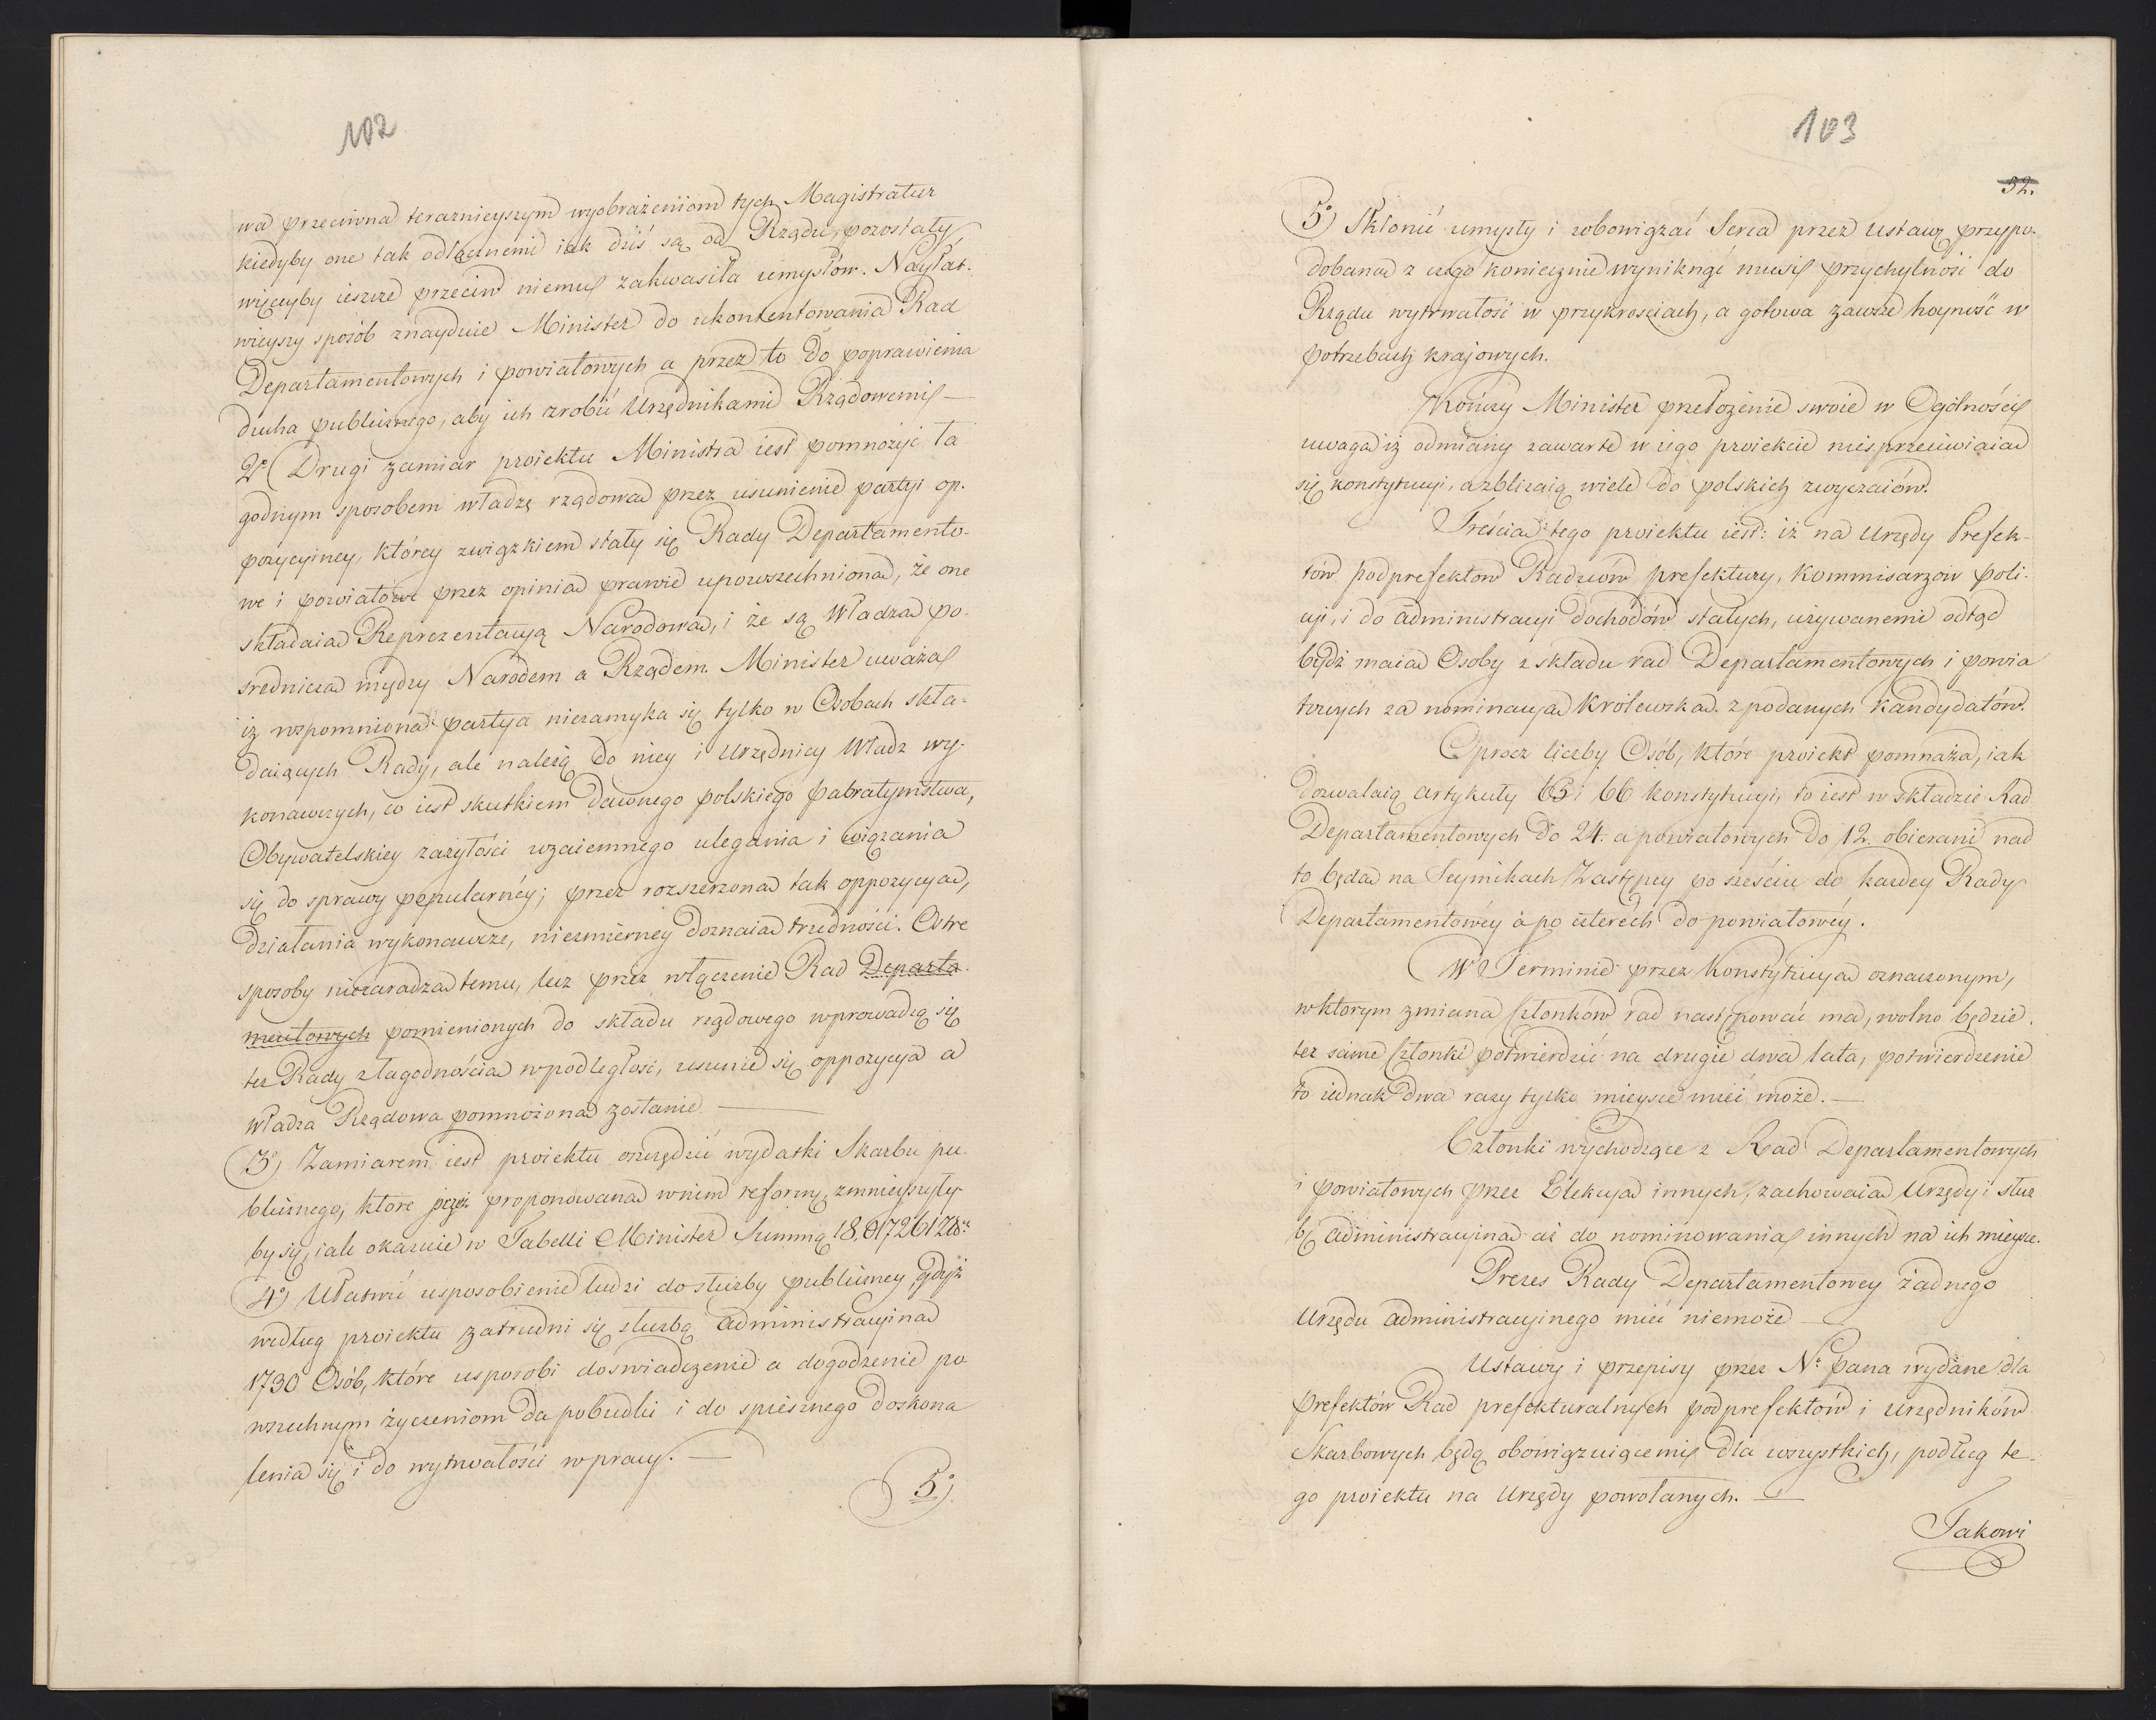 102
wa przeciwna teraznieyszym wyobrażeniom tych Magistratur
kiedyby one tak odłącznemi iak dziś są od Rządu, pozostały
więcyby ieszcze przeciw niemu zakwasiła umysłów. Nayłat-
wieyszy sposób znayduie Minister do ukontentowania Rad
Departamentowych i powiatowych a przez to do poprawienia
ducha publicznego, aby ich zrobić Urzędnikami Rządowemi —
2º) Drugi zamiar proiektu Ministra iest pomnożyć ła
godnym sposobem władzę rządową przez usunienie partyi op-
pozycyiney, którey związkiem stały się Rady Departamento-
we i powiatowe przez opinią prawie upowszechnioną, że one
składaią Reprezentacyą Narodową, i że są Władzą po-
sredniczą między Narodem a Rządem. Minister uważa
iż wspomniona partya niezamyka się tylko w Osobach skła-
daiących Rady, ale należą do niey i Urzędnicy Władz wy-
konawczych, co iest skutkiem dawnego polskiego pabratymstwa,
Obywatelskiey zażyłości wzaiemnego ulegania i wiązania
się do sprawy popularnéy; przez rozszerzoną tak oppozycyą,
działania wykonawcze, niezmierney doznaią trudności. Ostre
sposoby niezaradzą temu, lecz przez włączenie Rad Departa-
mentowych pomienionych do składu rządowego wprowadzą się
też Rady z łagodnością w podległość, usunie się oppozycya a
władza Rządowa pomnożoną zostanie —
3º) Zamiarem iest proiektu oszczędzić wydatki Skarbu pu-
blicznego, które przez proponowaną w nim reformę zmnieyszyły-
by się, iak okazuie w Tabelli Minister Summą
4º) Ułatwić usposobienie ludzi do służby publiczney, gdyż
według proiektu zatrudni się służbą administracyiną
1730 Osób, które usposobi doświadczenie a dogodzenie po
wszechnym życzeniom da pobudki i do spiesznego doskona
lenia się i do wytrwałości w pracy. —
5º)
103
32.
5º) Skłonić umysły i zobowiązać Serca przez ustawę przypo-
dobaną z czego koniecznie wyniknąć musi przychylność do
Rządu wytrwałość w przykrościach, a gotowa zawsze hoyność w
potrzebach krajowych.
Kończy Minister przełożenie swoie w Ogólności
uwagą iż odmiany zawarte w iego proiekcie niesprzeciwiaią
się konstytucyi, a zbliżaią wiele do polskich zwyczaiów.
Treścią tego proiektu iest: iż na Urzędy Prefek-
tów podprefektów Radzców prefektury, kommisarzów poli-
cyi, i do administracyi dochodów stałych, używanemi odtąd
bydź maią Osoby z składu rad Departamentowych i powia
towych za nominacyą Królewską z podanych kandydatów.
Oprocz liczby Osób, które proiekt pomnaża, iak
dozwalaią artykuły 65 i 66 konstytucyi, to iest w składzie Rad
Departamentowych do 24. a powiatowych do 12. obierani nad
to będą na Seymikach Zastępcy po sześciu do każdey Rady
Departamentowéy a po czterech do powiatowéy.
W Terminie przez Konstytucyą oznaczonym,
w ktorym zmiana Członków rad następować ma, wolno będzie
też same Członki potwierdzić na drugie dwa lata, potwierdzenie
to iednak dwa razy tylko mieysce mieć może. —
Członki wychodzące z Rad Departamentowych
i powiatowych przez Elekcyą innych, zachowaią Urzędy i służ
bę administracyiną aż do nominowania innych na ich mieysce.
Prezes Rady Departamentowey żadnego
Urzędu administracyinego mieć niemoże —
Ustawy i przepisy przez Nº Pana wydane dla
Prefektów Rad prefekturalnych podprefektów i Urzędników
Skarbowych będą obowiązuiącemi dla wszystkich, podług te-
go proiektu na Urzędy powołanych. —
Takowi